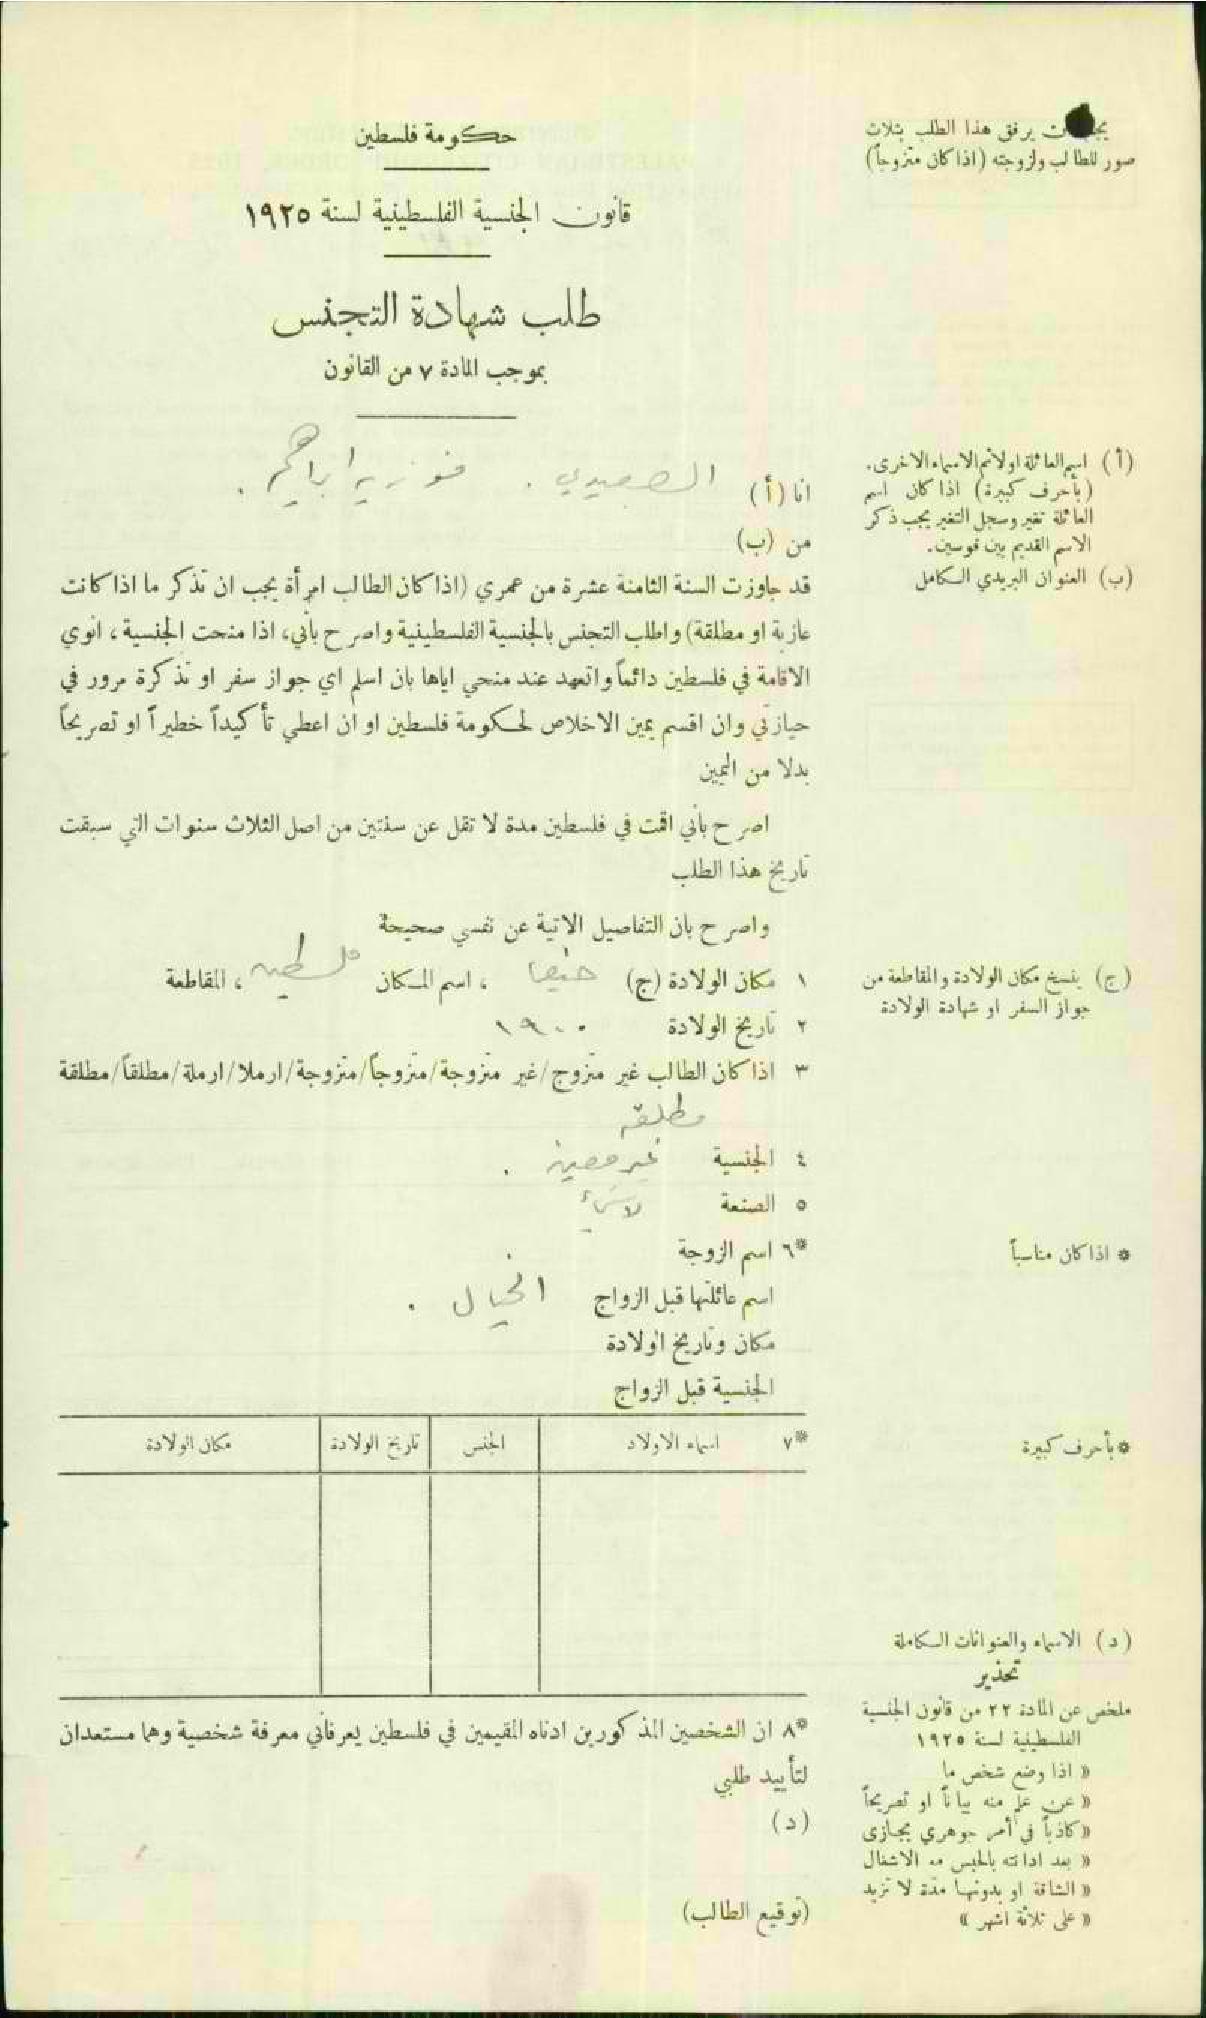 حكومة فلسطين
قانون الجنسية الفلسطينية لسنة ١٩٢٥
طلب شهادة التجنس
بموجب المادة ٧ من القانون
يرفق هذا الطلب بثلاث
صور للطالب ولزوجته (اذا كان متزوجاً)
انا (أ) الصعيدي . فوزيه ابراهيم .
من (ب)
قد جاوزت السنة الثامنة عشرة من عمري (اذا كان الطالب امرأة يجب ان تذكر ما اذا كانت
عازبة او مطلقة) واطلب التجنس بالجنسية الفلسطينية واصرح بأني، اذا منحت الجنسية، انوي
الاقامة في فلسطين دائماً واتعهد عند منحي اياها بان اسلم اي جواز سفر او تذكرة مرور في
حيازتي وان اقسم يمين الاخلاص لحكومة فلسطين او ان اعطي تأكيداً خطيراً او تصريحاً
بدلا من اليمين
اصرح بأني اقمت في فلسطين مدة لا تقل عن سنتين من اصل الثلاث سنوات التي سبقت
تاريخ هذا الطلب
واصرح بان التفاصيل الاتية عن نفسي صحيحة
١ مكان الولادة (ج) حيفا ، اسم المكان فلسطين ، المقاطعة
٢ تاريخ الولادة ١٩٠٠
٣ اذا كان الطالب غير متزوج/غير متزوجة/متزوجاً/متزوجة/ارملا/ارملة/مطلقاً/مطلقة
مطلقه
٤ الجنسية غير معينه .
٥ الصنعة لا شيء
*٦ اسم الزوجة
اسم عائلتها قبل الزواج الخيال .
مكان وتاريخ الولادة
الجنسية قبل الزواج
*٧ اسماء الاولاد الجنس تاريخ الولادة مكان الولادة
*٨ ان الشخصين المذكورين ادناه المقيمين في فلسطين يعرفاني معرفة شخصية وهما مستعدان
لتأييد طلبي
(د)
(توقيع الطالب)
(أ) اسم العائلة اولا ثم الاسماء الاخرى.
(بأحرف كبيرة) اذا كان اسم
العائلة تغير وسجل التغير يجب ذكر
الاسم القديم بين قوسين.
(ب) العنوان البريدي الكامل
(ج) ينسخ مكان الولادة والمقاطعة من
جواز السفر او شهادة الولادة
* اذا كان مناسباً
* بأحرف كبيرة
(د) الاسماء والعنوانات الكاملة
تحذير
ملخص عن المادة ٢٢ من قانون الجنسية
الفلسطينية لسنة ١٩٢٥
« اذا وضع شخص ما
« عن علم منه بياناً او تصريحاً
« كاذباً في أمر جوهري يجازى
« بعد ادانته بالحبس مع الاشغال
« الشاقة او بدونها مدة لا تزيد
« على ثلاثة اشهر »